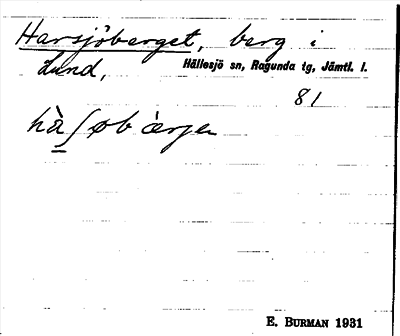 Harsjöberget, berg i
Lund, Hällesjö sn, Ragunda tg, Jämtl. l.
81
hàʃøbærjen
E. BURMAN 1931